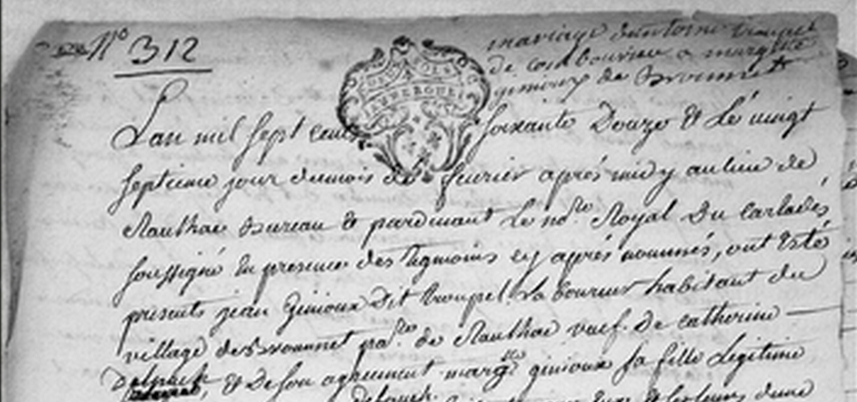 N° 312
mariage d'antoine troupel
de combourieu a margte
ginioux de Brounnet
L'an mil sept cent soixante Douze & Le vingt
septieme jour du mois de fevrier après midy au lieu de
Rauthac Bureau & pardevant Le nore Royal Du Carladés
soussigné En presence des temoins cy après nommés, ont Esté
presents jean Ginioux dit troupel Laboureur habitant du
village de Brounnet passe de Rauthac veuf De catherine
Delpuech, & De son agreement margte ginioux sa fille Legitime